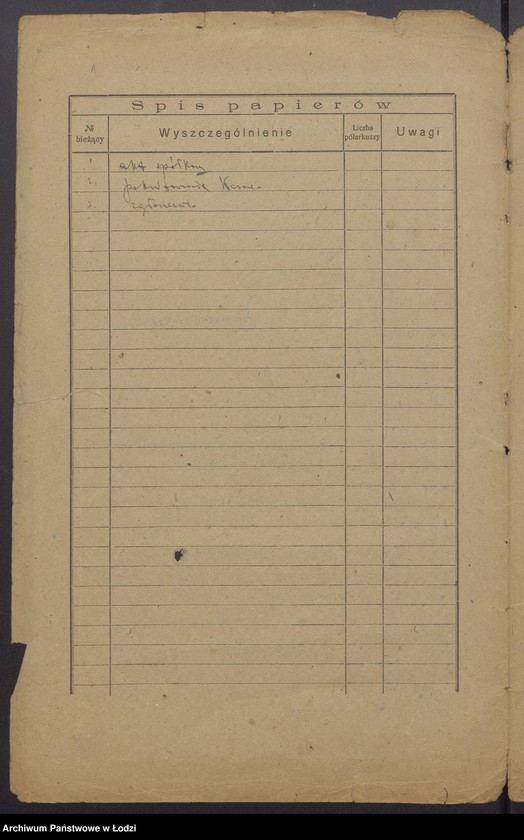 Spis papierów
№ bieżący
Wyszczególnienie
Liczba półarkuszy
Uwagi
1 akt spółkowy
2. pokwitowanie Kasowe.
3. zgłoszenie.
Archiwum Państwowe w Łodzi